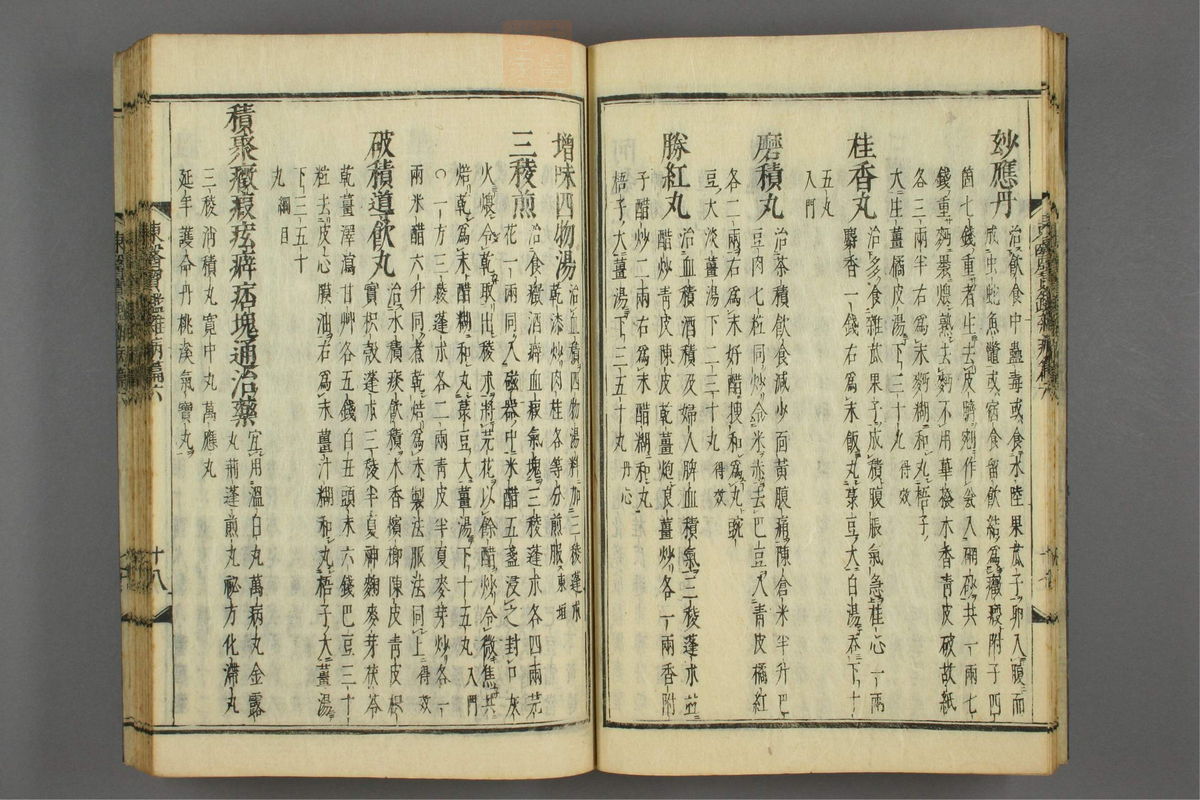 妙應丹
治飮食中蠱毒或食水陸果苽子卵入腹而
成虫蛇魚鼈或宿食留飮結爲癥瘕附子四
箇七錢重者生去皮臍剜作瓮入硇砂共一兩七
錢重麪褁煨熟去麪不用蓽撥木香靑皮破故紙
各三兩半右爲末麪糊和丸梧子
大生薑橘皮湯下三十丸得效
桂香丸
治多食雜苽果子成積腹脹氣急桂心一兩
麝香一錢右爲末飯丸菉豆大白湯呑下十
五丸
入門
磨積丸
治茶積飮食減少面黃腹痛陳倉米半升巴
豆肉七粒同炒令米赤去巴豆入靑皮橘紅
各二兩右爲末好醋搜和爲丸豌
豆大淡薑湯下二三十丸得效
勝紅丸
治血積及婦人脾血積氣三稜蓬朮並
醋炒靑皮陳皮乾薑炮良薑炒各一兩香附
子醋炒二兩右爲末醋糊和丸
梧子大薑湯下三五十丸丹心
增味四物湯
治血積四物湯料加三稜蓬朮
乾漆炒肉桂各等分煎服東垣
三稜煎
治食癥酒癖血瘕氣塊三稜蓬朮各四兩芫
花一兩同入磁器中米醋五盞浸之封口灰
火煨令乾取出稜朮將芫花以餘醋炒令微焦共
焙乾爲末醋糊和丸菉豆大薑湯下十五丸入門
○一方三稜蓬朮各二兩靑皮半夏麥芽炒各一
兩米醋六升同煮乾焙爲末製法服法同上得效
破積道飮丸
治水積痰飮積木香檳榔陳皮靑皮枳
實枳殼蓬朮三稜半夏神麴麥芽茯苓
乾薑澤瀉甘艸各五錢白丑頭末六錢巴豆三十
粒去皮心膜油右爲末薑汁糊和丸梧子大薑湯
下三五十
丸綱目
積聚癥瘕痃癖痞塊通治藥
宜用溫白丸萬病丸金露
丸荊蓬煎丸祕方化滯丸
三稜消積丸寬中丸萬應丸
延年護命丹桃溪氣寶丸
東醫寶鑑雜病篇六
十八